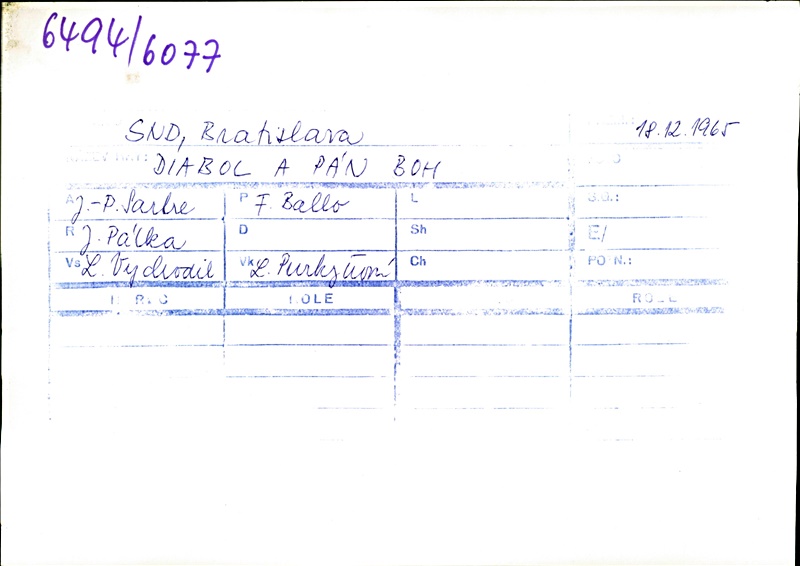 6494/6077
SND, Bratislava 18.12.1965
DIABOL A PÁN BOH
A J.-P. Sartre P F. Ballo L
R J. Pálka D Sh E/
Vs L. Vychodil Vk L. Purkyňová Ch
ROLE